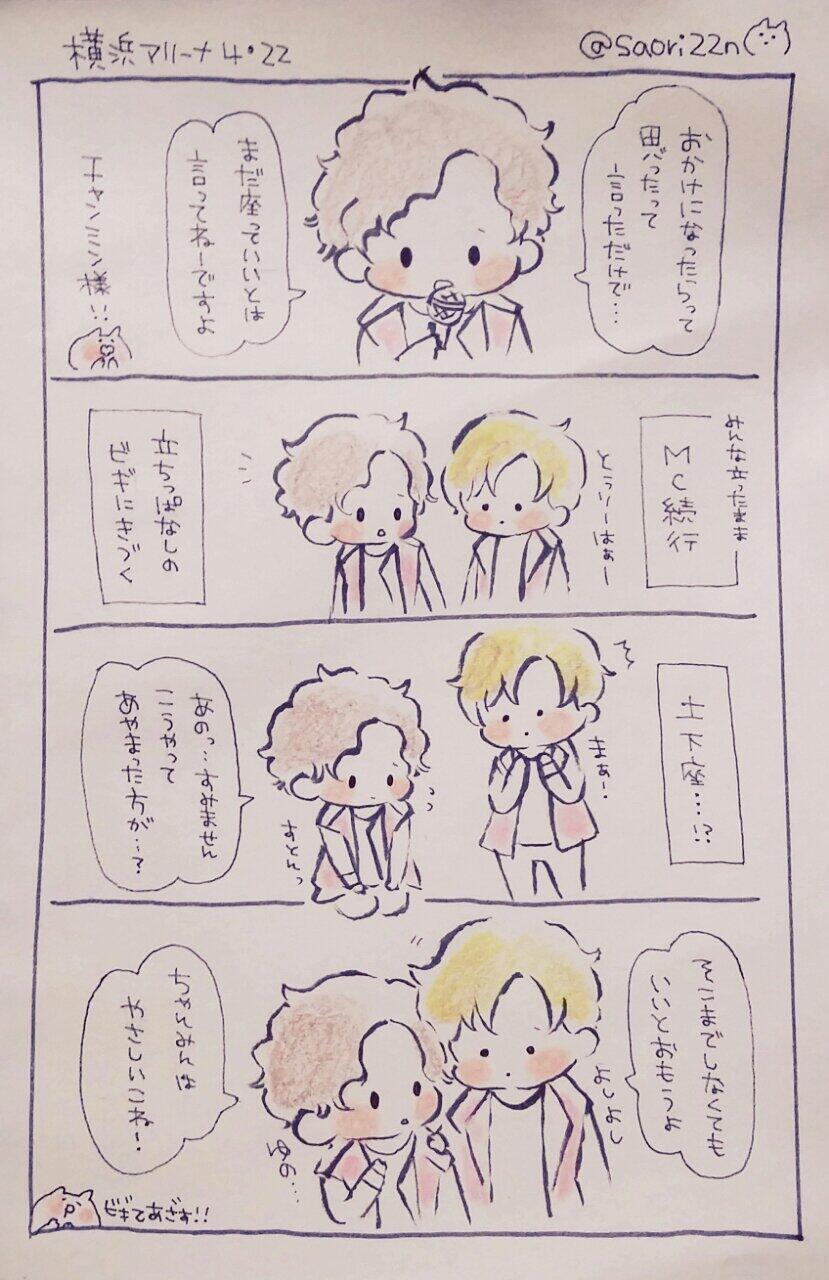 横浜アリーナ 4・22
@saori22n
おかけになったらって
思ったって
言っただけで…
まだ座っていいとは
言ってねーですよ
チャンミン様!!
みんな立ったまま
MC続行
とぅりーはぁー
立ちっぱなしの
ビギにきづく
土下座…!?
まぁー。
あのっ…すみません
こうやって
あやまった方が…?
すとんっ
そこまでしなくても
いいとおもうよ
よしよし
ちゃんみんは
やさしいこね!
ゆの…
ビギてあざす!!